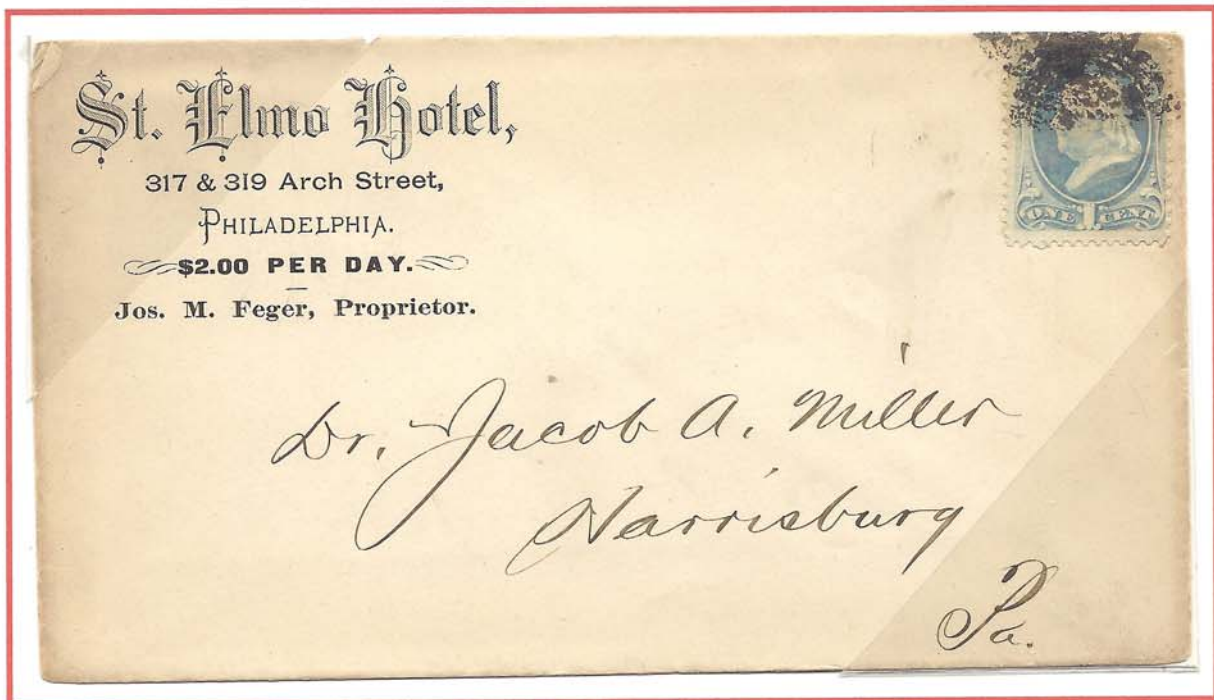 St. Elmo Hotel,
317 & 319 Arch Street,
PHILADELPHIA.
$2.00 PER DAY.
Jos. M. Feger, Proprietor.
ONE 1 CENT
Dr. Jacob A. Miller
Harrisburg
Pa.